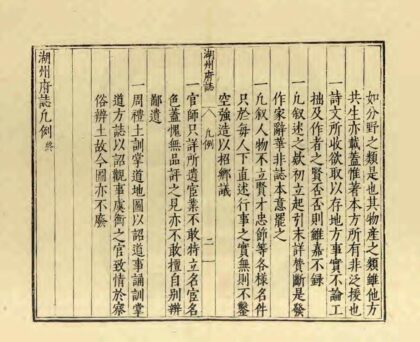 如分野之類是也其物產之類雖他方
共生亦載蓋惟著本方所有非泛援也
一詩文所收欲取以存地方事實不論工
拙及作者之賢否否則雖嘉不錄
一凡叙述之欵初立起引末詳贊斷是發
作家辭華非誌本意罷之
一凡叙人物不立賢才忠節等各樣名件
只於每人下直述行事之實無則不鑿
空強造以招鄉議
湖州府誌 凡例 二
一官師只詳所遺宦業不敢特立名宦名
色蓋愧無品評之見亦不敢擅自别辨
鄙遺
一周禮土訓掌道地圖以詔道事誦訓掌
道方誌以詔觀事虞衡之官致情於察
俗辨土故今圖亦不廢
湖州府誌凡例 終